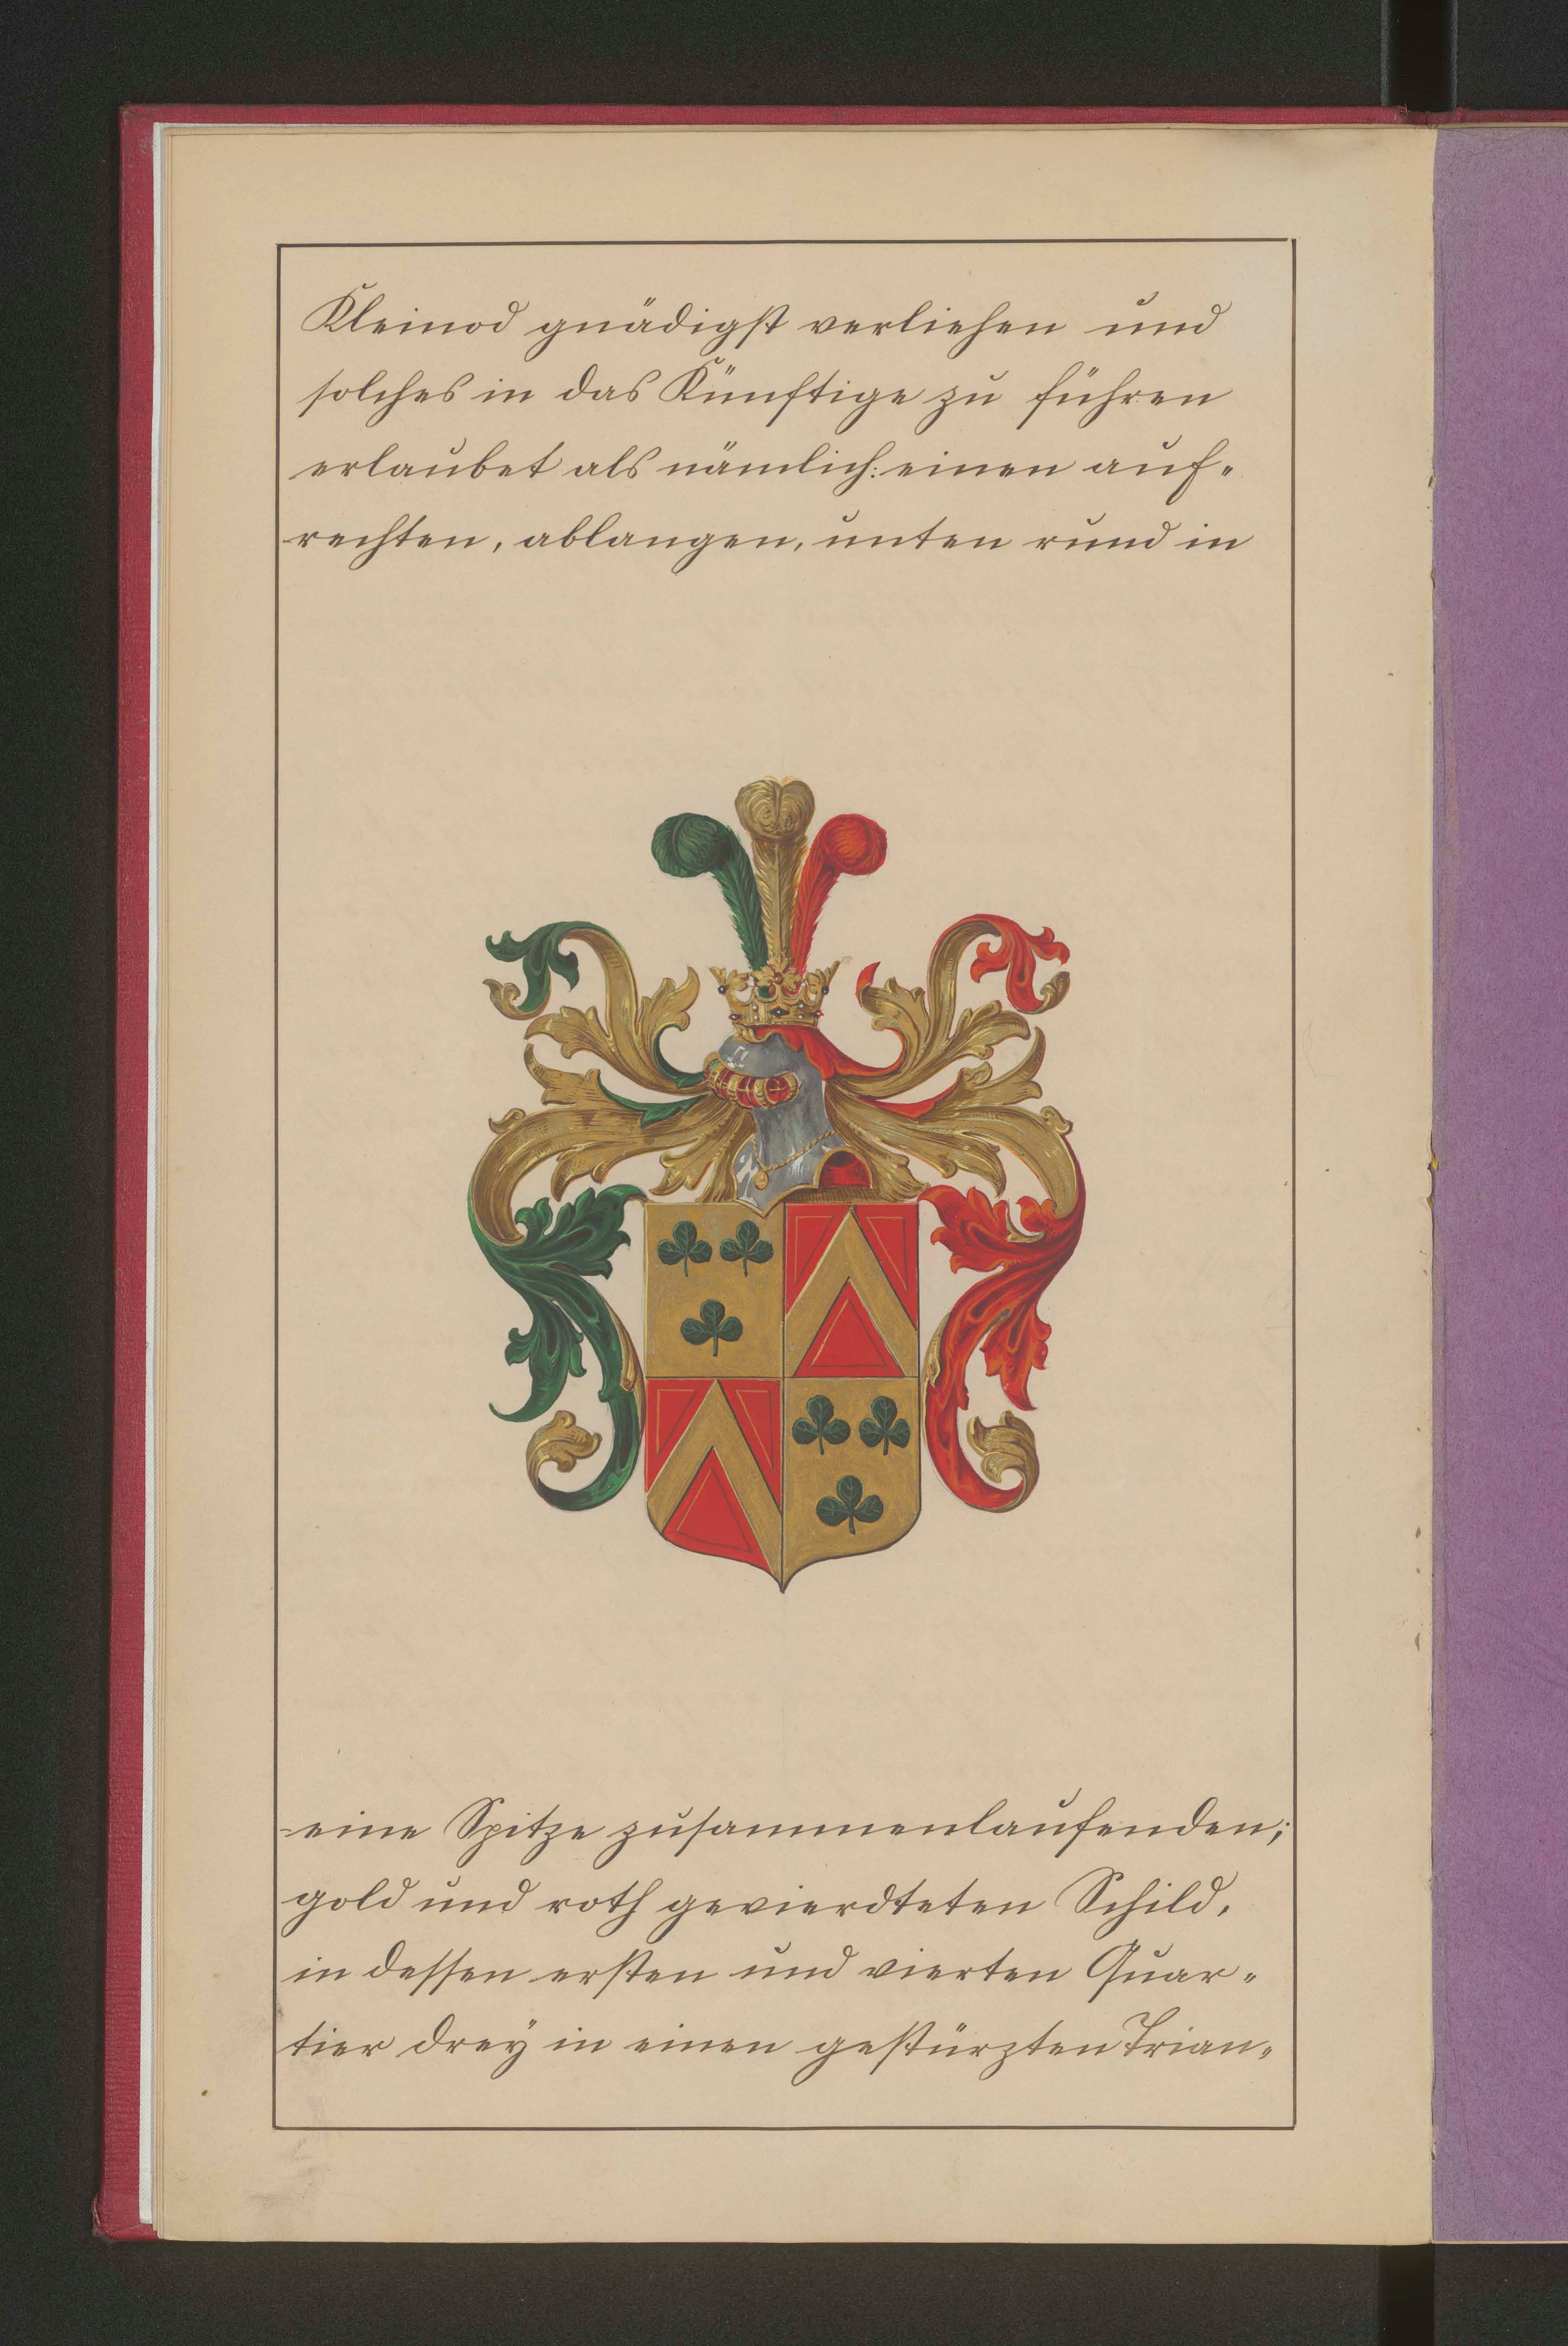 Kleinod gnädigst verliehen und
solches in das Künftige zu führen
erlaubet als nämlich: einen auf-
rechten, ablangen, unten rund in
eine Spitze zusammenlaufenden;
gold und roth gevierdteten Schild,
in dessen ersten und vierten Quar-
tier dreÿ in einen gestürzten Trian-